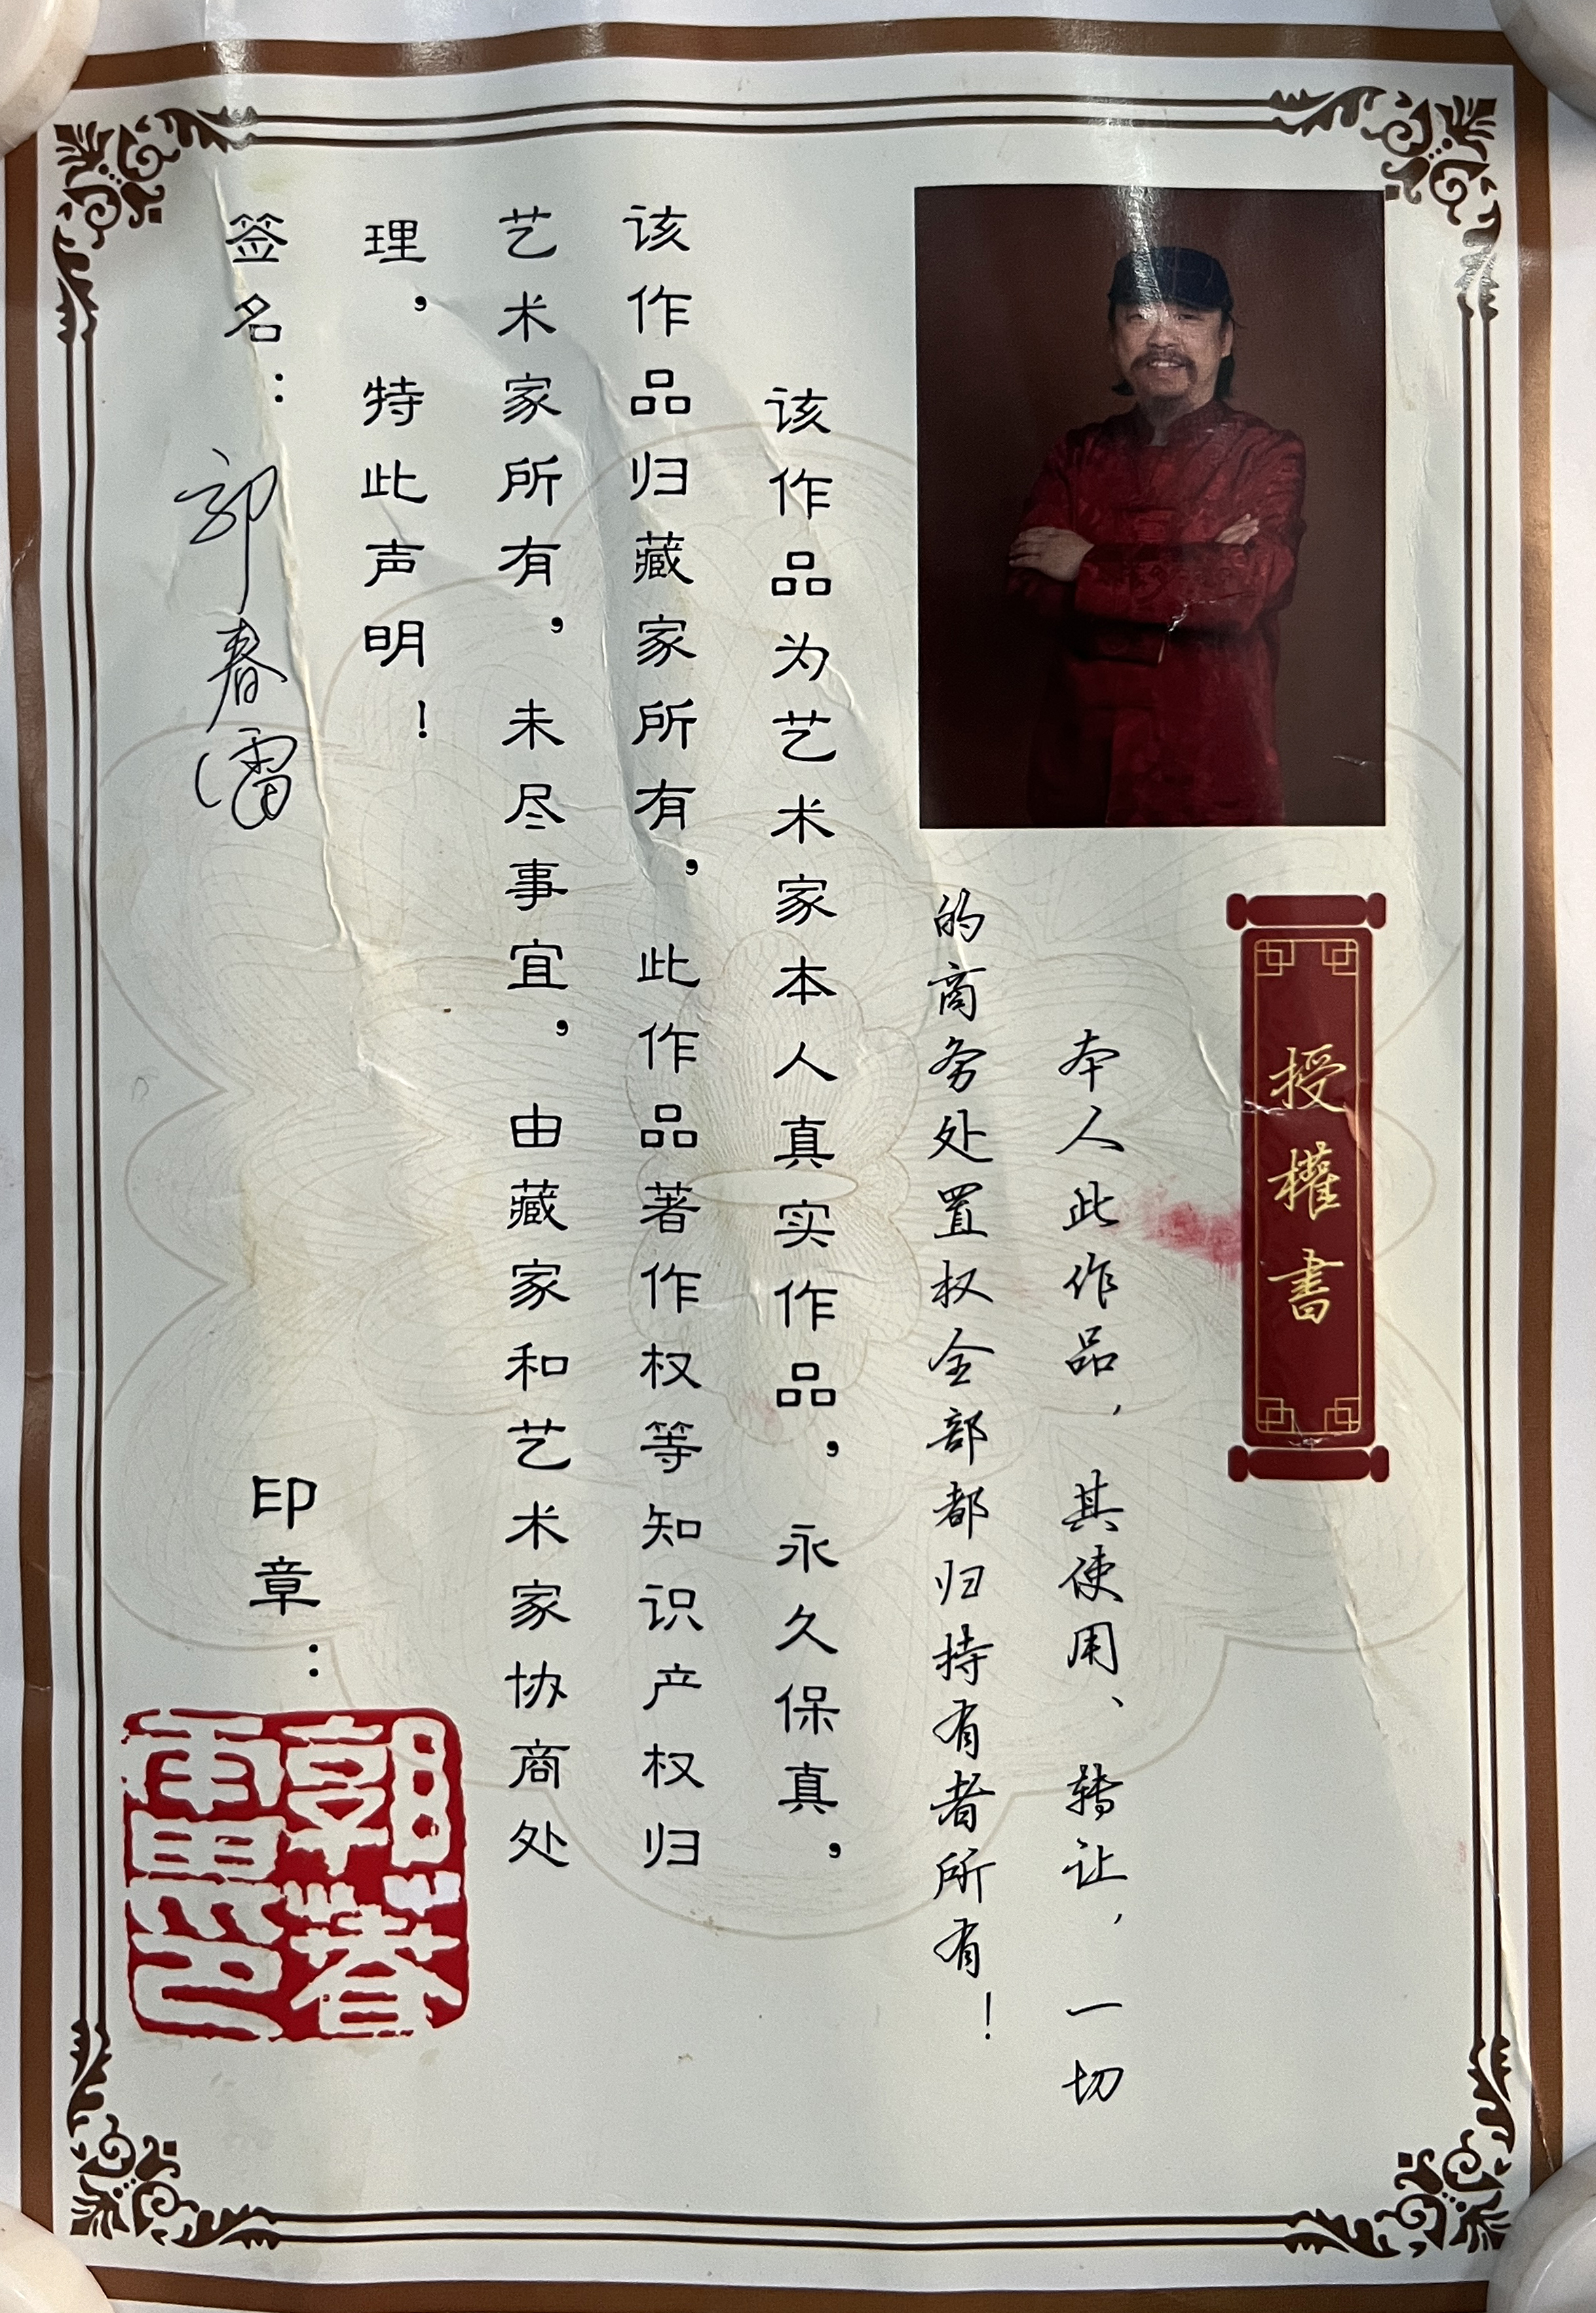 授權書
本人此作品，其使用、转让，一切
的商务处置权全部都归持有者所有！
该作品为艺术家本人真实作品，永久保真，
该作品归藏家所有，此作品著作权等知识产权归
艺术家所有，未尽事宜，由藏家和艺术家协商处
理，特此声明！
签名：郭春雷
印章：
郭春
雷印